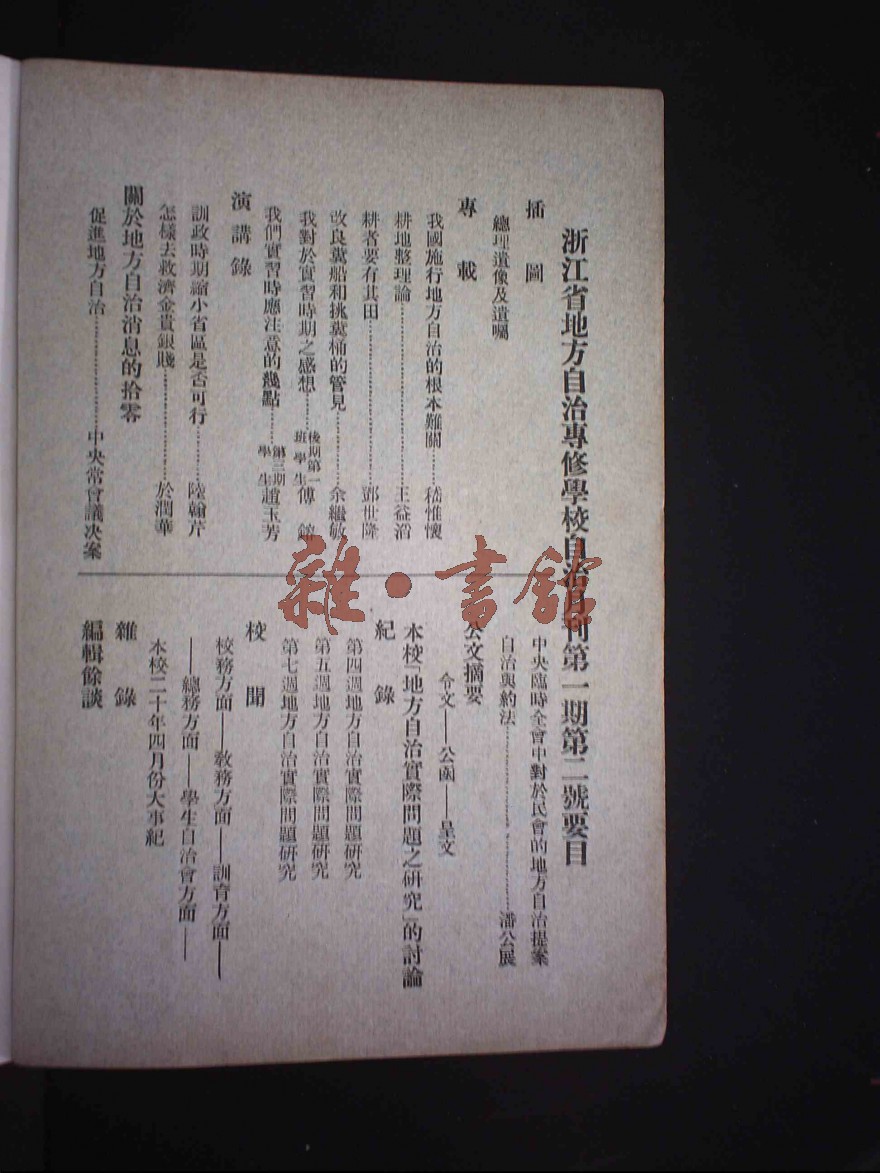 浙江省地方自治專修學校自治月刊第一期第二號要目
插圖
總理遺像及遺囑
專載
我國施行地方自治的根本難關…………嵇惟懷
耕地整理論…………王益滔
耕者要有其田…………鄧世隆
改良糞船和挑糞桶的管見…………余繼敏
我對於實習時期之感想…………後期第一班學生傅
我們實習時應注意的幾點…………第三期學生趙玉芳
演講錄
訓政時期縮小省區是否可行…………陸翰芹
怎樣去救濟金貴銀賤…………於潤華
關於地方自治消息的拾零
促進地方自治…………中央常會議决案
中央臨時全會中對於民會的地方自治提案
自治與約法…………潘公展
公文摘要
令文——公函——呈文
紀錄
本校「地方自治實際問題之研究」的討論
第四週地方自治實際問題研究
第五週地方自治實際問題研究
第七週地方自治實際問題研究
校聞
校務方面——敎務方面——訓育方面——
——總務方面——學生自治會方面——
本校二十年四月份大事紀
雜錄
編輯餘談
雜·書館